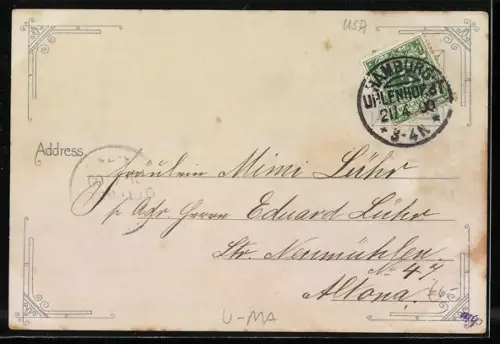 USA
HAMBURG
UHLENHORST
3-4N
Address
Fräulein Mimi Lühr
p. Adr. Herrn Eduard Lühr
Str. Neumühlen
No. 47
Altona
U-MA